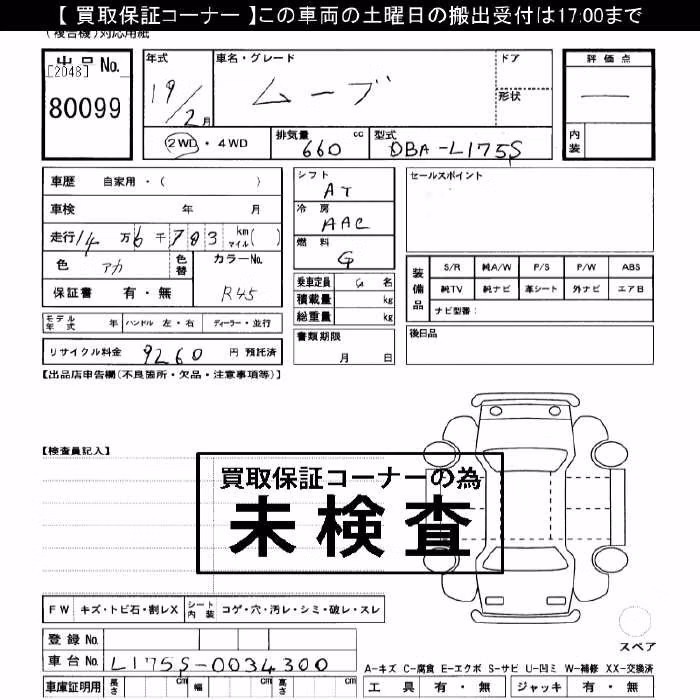 【 買取保証コーナー 】この車両の土曜日の搬出受付は17:00まで
(複合機)対応用紙
出品 No.
[2048]
80099
年式
19/2月
車名・グレード
ムーブ
ドア
形状
評価点
―
内装
2WD・4WD
排気量 cc
660
型式
DBA-L175S
車歴 自家用・( )
車検 年 月
走行 14万6千783 km マイル( )
色 アカ
色替
カラーNo.
R45
保証書 有・無
モデル年式 年 ハンドル 左・右 ディーラー・並行
リサイクル料金 9260 円 預託済
シフト
AT
冷房
AAC
燃料
G
乗車定員 名
積載量 kg
総重量 kg
書類期限
月 日
セールスポイント
装備品
S/R 純A/W P/S P/W ABS
純TV 純ナビ 革シート 外ナビ エアB
ナビ型番:
後日品
【出品店申告欄(不良箇所・欠品・注意事項等)】
【検査員記入】
買取保証コーナーの為
未検査
FW キズ・トビ石・割レX シート内装 コゲ・穴・汚レ・シミ・破レ・スレ
スペア
登録 No.
車台 No. L175S-0034300
車庫証明用 長さ cm 幅 cm 高さ cm
A-キズ C-腐食 E-エクボ S-サビ U-凹ミ W-補修 XX-交換済
工具 有・無 ジャッキ 有・無